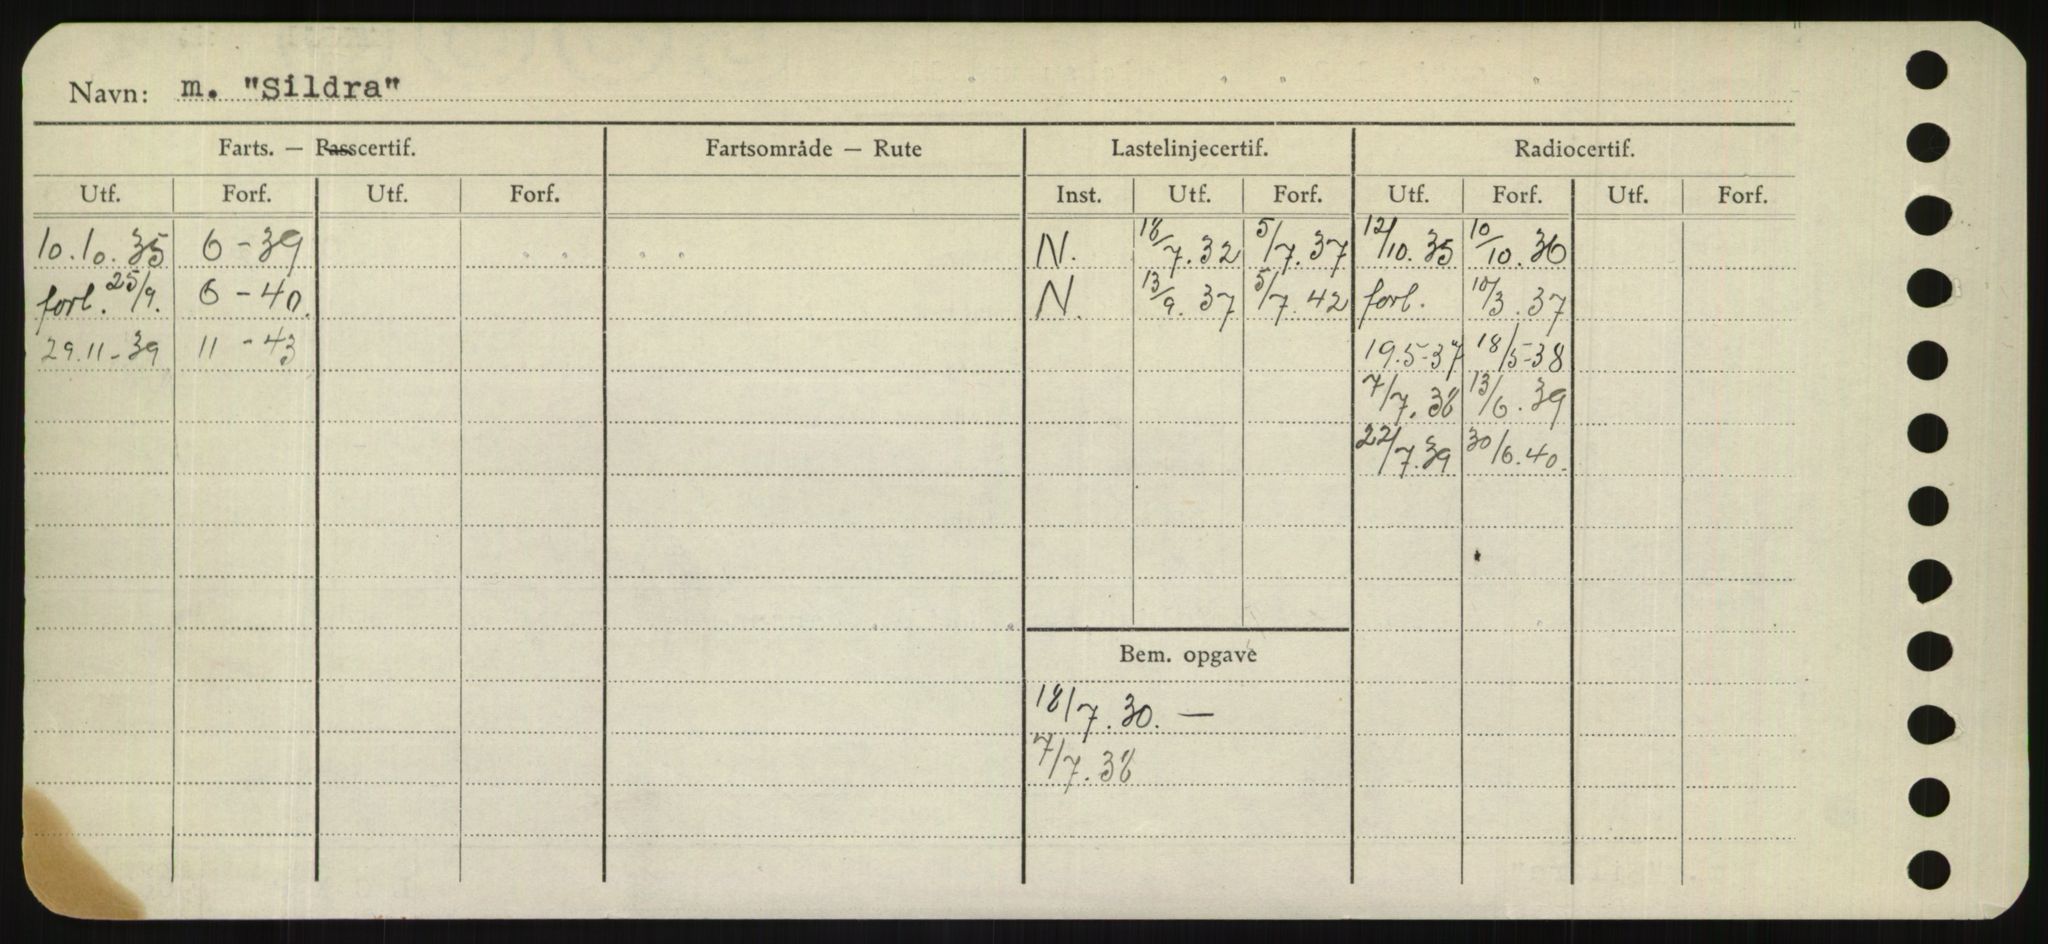 Navn: m. "Sildra"
Farts. — Passcertif. Fartsområde — Rute Lastelinjecertif. Radiocertif.
Utf. Forf. Utf. Forf. Inst. Utf. Forf. Utf. Forf. Utf. Forf.
10.10.35 6-39 N. 18/7.32 5/7.37 12/10.35 10/10.36
forl. 25/9. 6-40. N. 13/9.37 5/7.42 forl. 10/3.37
29.11-39 11-43 19.5-37 18/5-38
7/7.38 13/6.39
22/7.39 30/6.40.
Bem. opgave
18/7.30. —
7/7.38